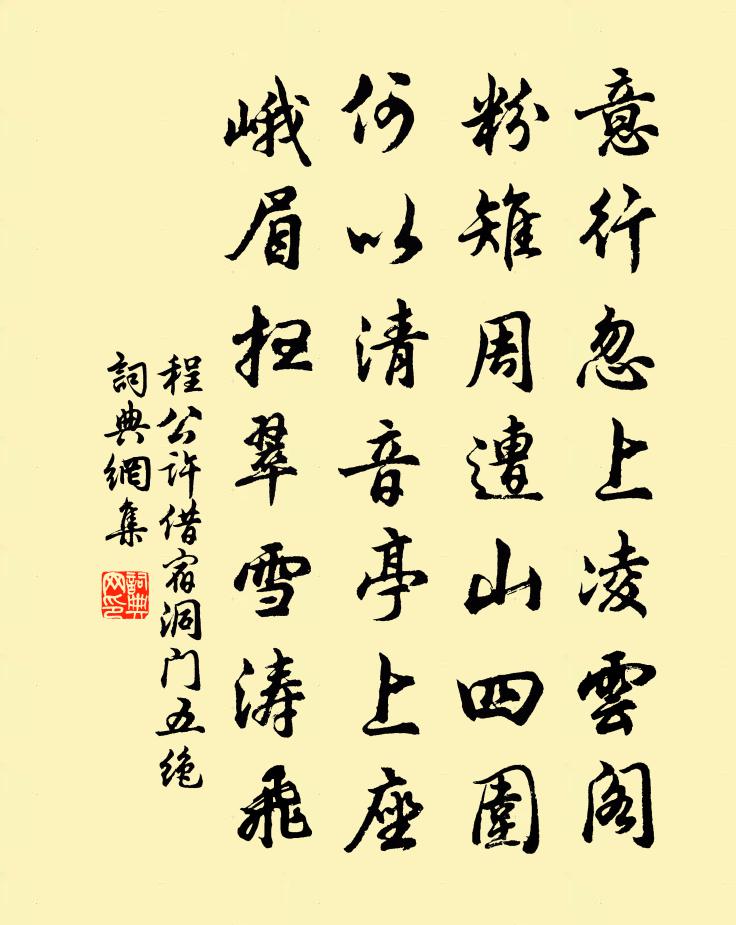 意行忽上凌雲閣
粉雉周遭山四圍
何似清音亭上座
峨眉抂翠雪涛飛
程公许借宿洞门五绝
詞典網集
詞典網印